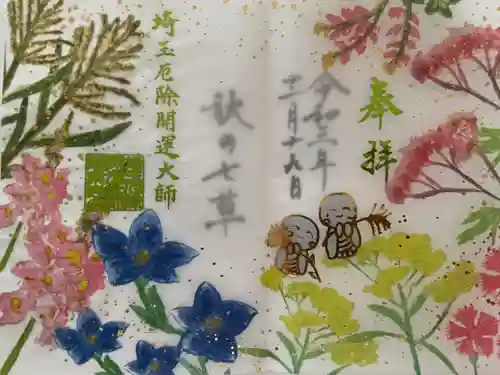 奉拝
令和三年
十一月十八日
秋の七草
埼玉厄除開運大師